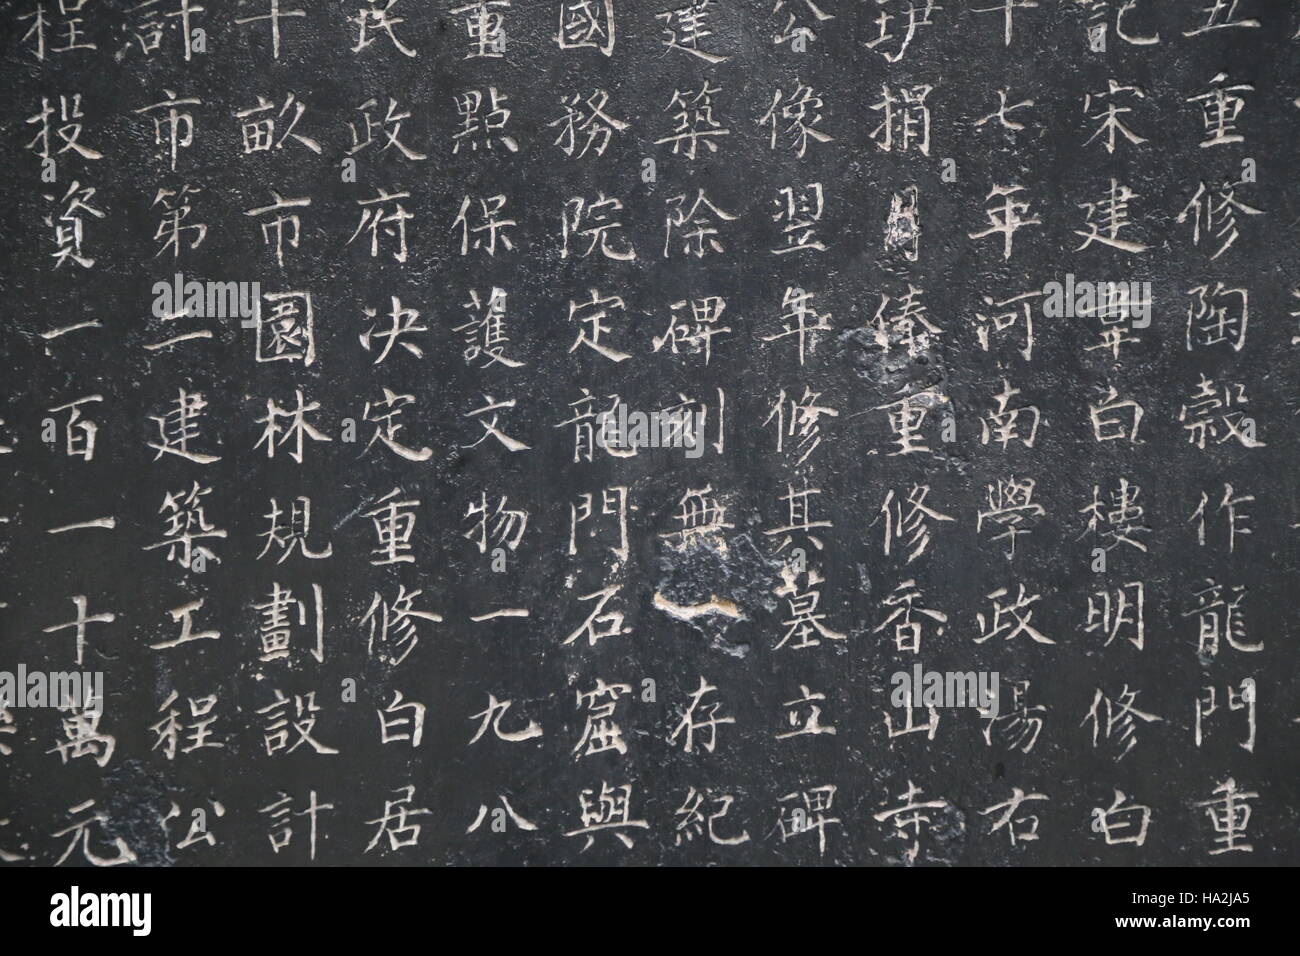 丑重修陶穀作龍門重
記宋建韋白樓明修白
十七年河南學政湯右
捐俸重修香山寺
公像翌年修其墓立碑
建築除碑刻無存紀
國務院定龍門石窟與
重點保護文物一九八
民政府决定重修白居
十畝市園林規劃設計
計市第二建築工程公
程投資一百一十萬元
alamy
Image ID: HA2JA5
www.alamy.com